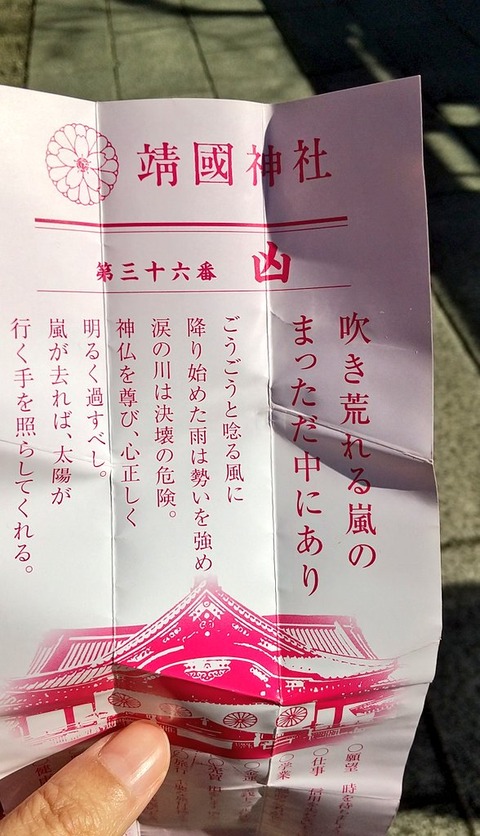 靖國神社
第三十六番 凶
吹き荒れる嵐の
まっただ中にあり
ごうごうと唸る風に
降り始めた雨は勢いを強め
涙の川は決壊の危険。
神仏を尊び、心正しく
明るく過すべし。
嵐が去れば、太陽が
行く手を照らしてくれる。
○願望 時を
○仕事 信用
○学業